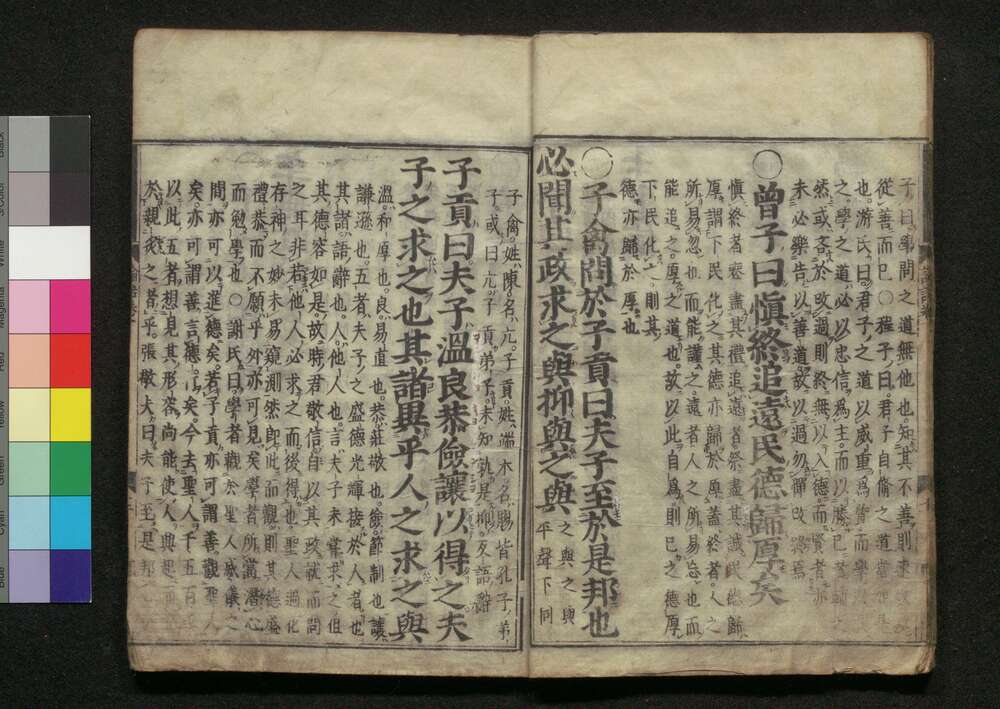 子曰學問之道無他也知其不善則速改以
從善而已○程子曰君子自脩之道當如是
也游氏曰君子之道以威重爲質而學以成
之學之道必以忠信爲主而以勝己者輔之
然或吝於改過則終無以入德而賢者亦
未必樂告以善道故以過勿憚改終焉
○曾子曰愼終追遠民德歸厚矣
愼終者喪盡其禮追遠者祭盡其誠民德歸
厚謂下民化之其德亦歸於厚蓋終者人之
所易忽也而能謹之遠者人之所易忘也而
能追之厚之道也故以此自爲則己之德厚
下民化之則其
德亦歸於厚也
○子禽問於子貢曰夫子至於是邦也
必聞其政求之與抑與之與 之與之與平聲下同
子禽姓陳名亢子貢姓端木名賜皆孔子弟
子或曰亢子貢弟子未知孰是抑反語辭
子貢曰夫子溫良恭儉讓以得之夫
子之求之也其諸異乎人之求之與
溫和厚也良易直也恭莊敬也儉節制也讓
謙遜也五者夫子之盛德光輝接於人者也
其諸語辭也人他人也言夫子未嘗求之但
其德容如是故時君敬信自以其政就而問
之耳非若他人必求之而後得也聖人過化
存神之妙未易窺測然卽此而觀則其德盛
禮恭而不願乎外亦可見矣學者所當潛心
而勉學也○謝氏曰學者觀於聖人威儀之
間亦可以進德矣若子貢亦可謂善觀聖人
矣亦可謂善言德行矣今去聖人千五百年
以此五者想見其形容尚能使人興起而況
於親炙之者乎張敬夫曰夫子至是邦